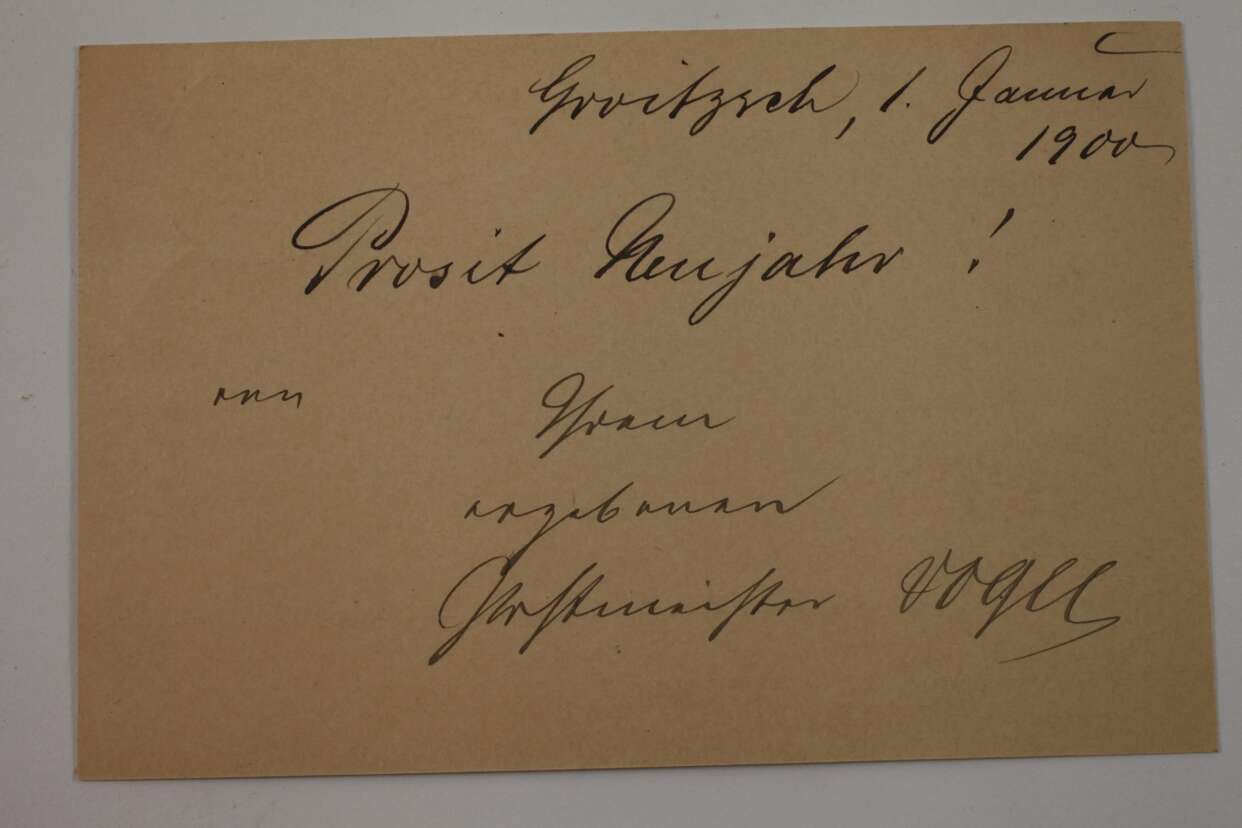 Groitzsch, 1. Januar
1900
Prosit Neujahr!
von Ihrem
ergebenen
Postmeister Vogel